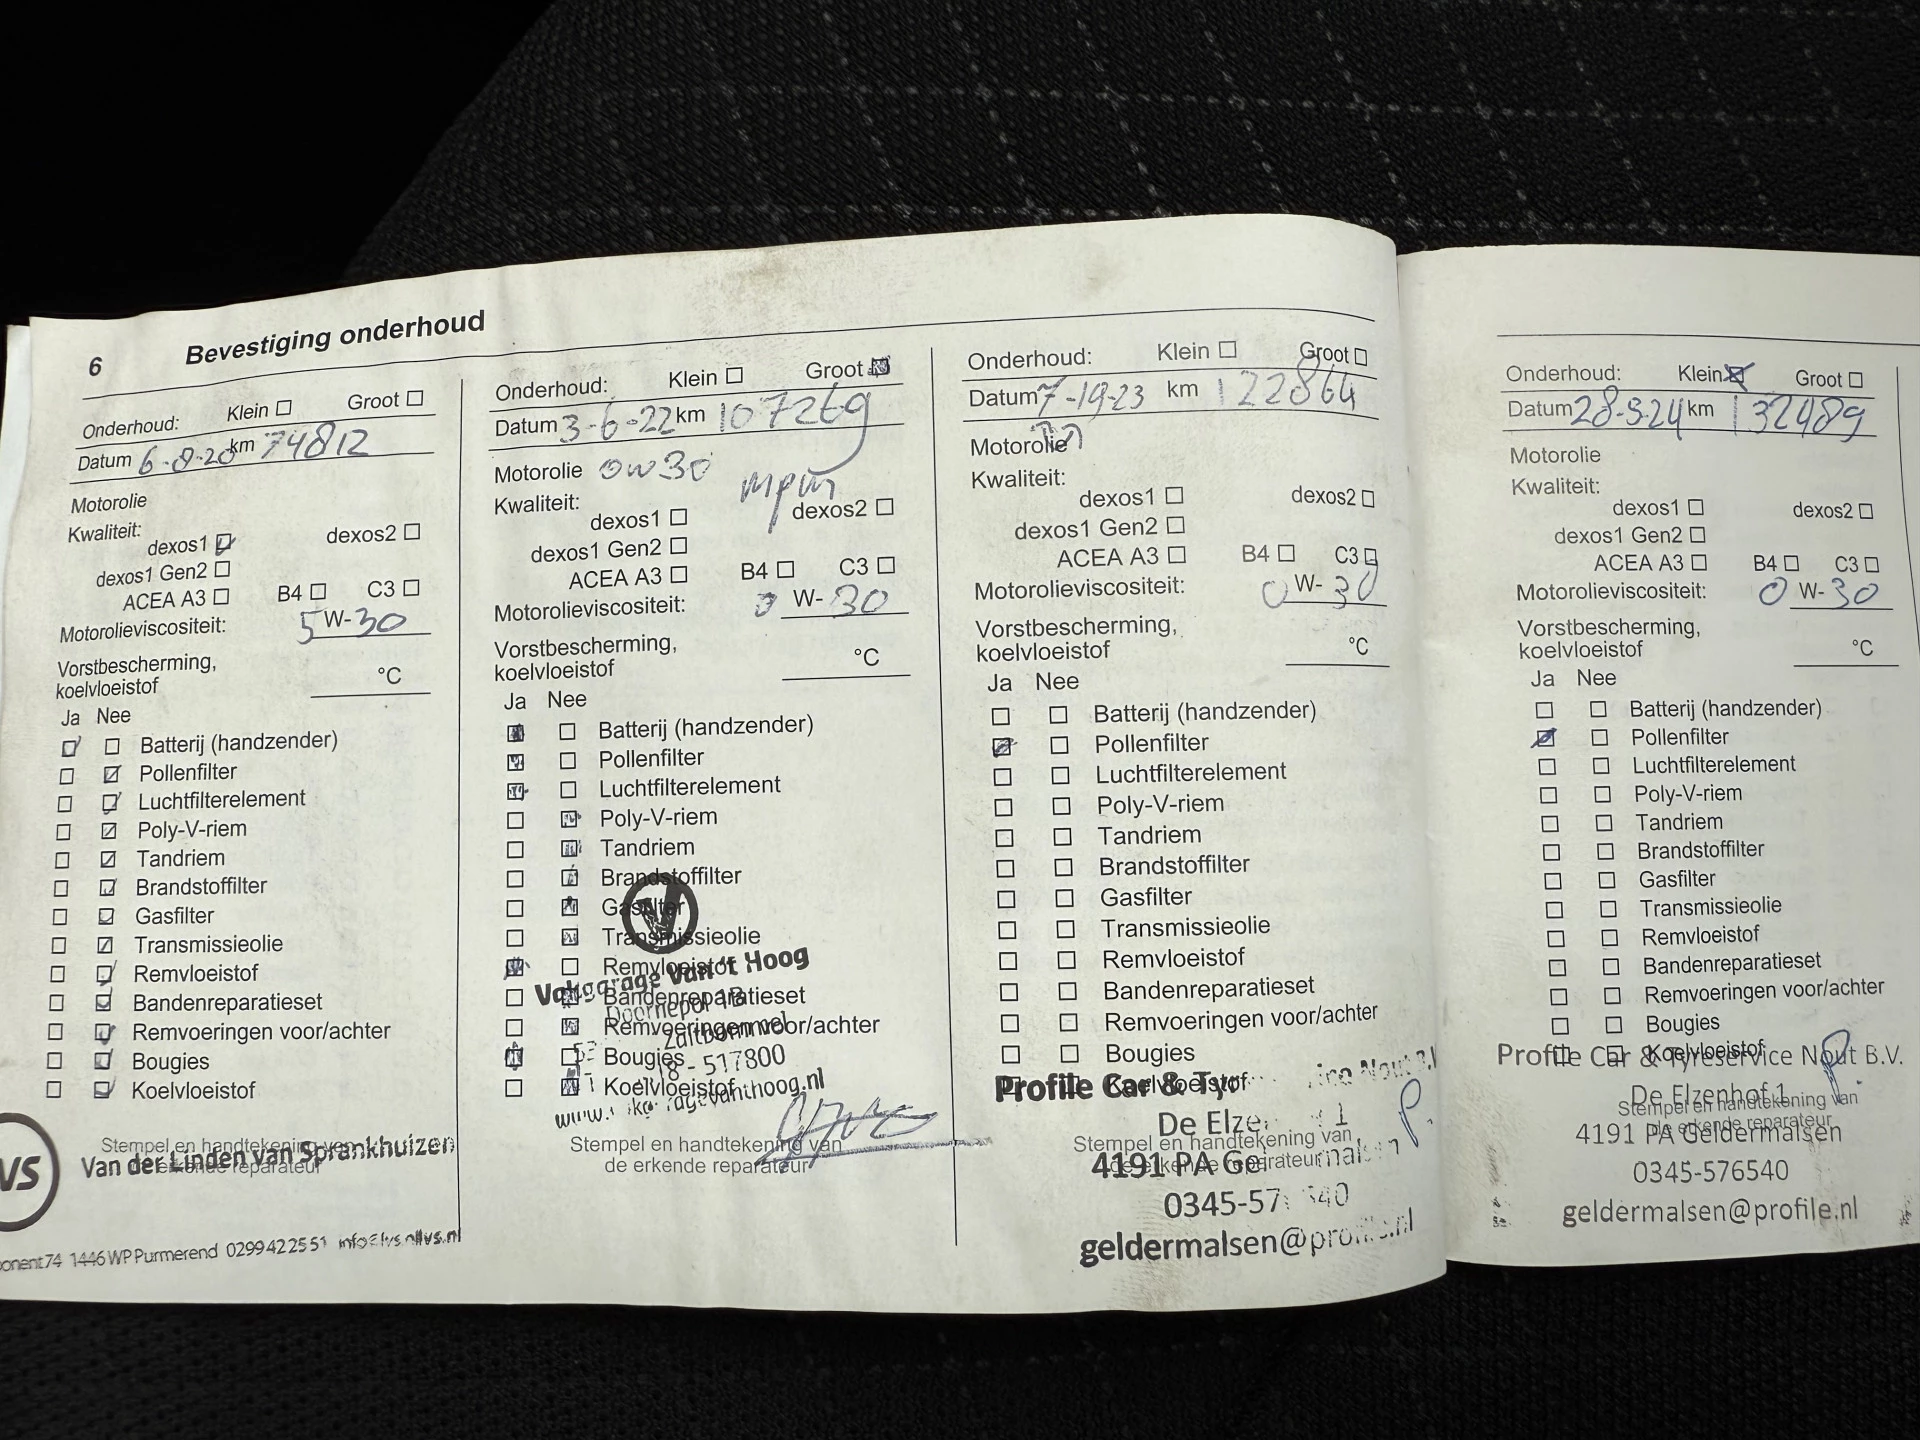 6 Bevestiging onderhoud
Onderhoud: Klein Groot
Datum 6-8-20 km 74812
Motorolie
Kwaliteit:
dexos1 dexos2
dexos1 Gen2
ACEA A3 B4 C3
Motorolieviscositeit: 5 W-30
Vorstbescherming,
koelvloeistof °C
Ja Nee
Batterij (handzender)
Pollenfilter
Luchtfilterelement
Poly-V-riem
Tandriem
Brandstoffilter
Gasfilter
Transmissieolie
Remvloeistof
Bandenreparatieset
Remvoeringen voor/achter
Bougies
Koelvloeistof
Stempel en handtekening van
de erkende reparateur
VS
Van der Linden van Sprankhuizen
74 1446 WP Purmerend 0299 422551
Onderhoud: Klein Groot
Datum 3-6-22 km 107269
Motorolie 0w30
Kwaliteit:
dexos1 dexos2
dexos1 Gen2
ACEA A3 B4 C3
Motorolieviscositeit: 0 W-30
Vorstbescherming,
koelvloeistof °C
Ja Nee
Batterij (handzender)
Pollenfilter
Luchtfilterelement
Poly-V-riem
Tandriem
Brandstoffilter
Gasfilter
Transmissieolie
Remvloeistof
Bandenreparatieset
Remvoeringen voor/achter
Bougies
Koelvloeistof
V
Vakgarage Van 't Hoog
Zaltbommel
517800
Stempel en handtekening van
de erkende reparateur
Onderhoud: Klein Groot
Datum 7-19-23 km 122864
Motorolie
Kwaliteit:
dexos1 dexos2
dexos1 Gen2
ACEA A3 B4 C3
Motorolieviscositeit: 0 W-30
Vorstbescherming,
koelvloeistof °C
Ja Nee
Batterij (handzender)
Pollenfilter
Luchtfilterelement
Poly-V-riem
Tandriem
Brandstoffilter
Gasfilter
Transmissieolie
Remvloeistof
Bandenreparatieset
Remvoeringen voor/achter
Bougies
Koelvloeistof
Profile Car & Ty
De Elze 1
Stempel en handtekening van
de erkende reparateur
4191 PA Ge
0345-57 540
geldermalsen@profile.nl
Onderhoud: Klein Groot
Datum 28-3-24 km 132489
Motorolie
Kwaliteit:
dexos1 dexos2
dexos1 Gen2
ACEA A3 B4 C3
Motorolieviscositeit: 0 W-30
Vorstbescherming,
koelvloeistof °C
Ja Nee
Batterij (handzender)
Pollenfilter
Luchtfilterelement
Poly-V-riem
Tandriem
Brandstoffilter
Gasfilter
Transmissieolie
Remvloeistof
Bandenreparatieset
Remvoeringen voor/achter
Bougies
Koelvloeistof
Profile Car & Tyreservice Nout B.V.
De Elzenhof 1
Stempel en handtekening van
de erkende reparateur
4191 PA Geldermalsen
0345-576540
geldermalsen@profile.nl